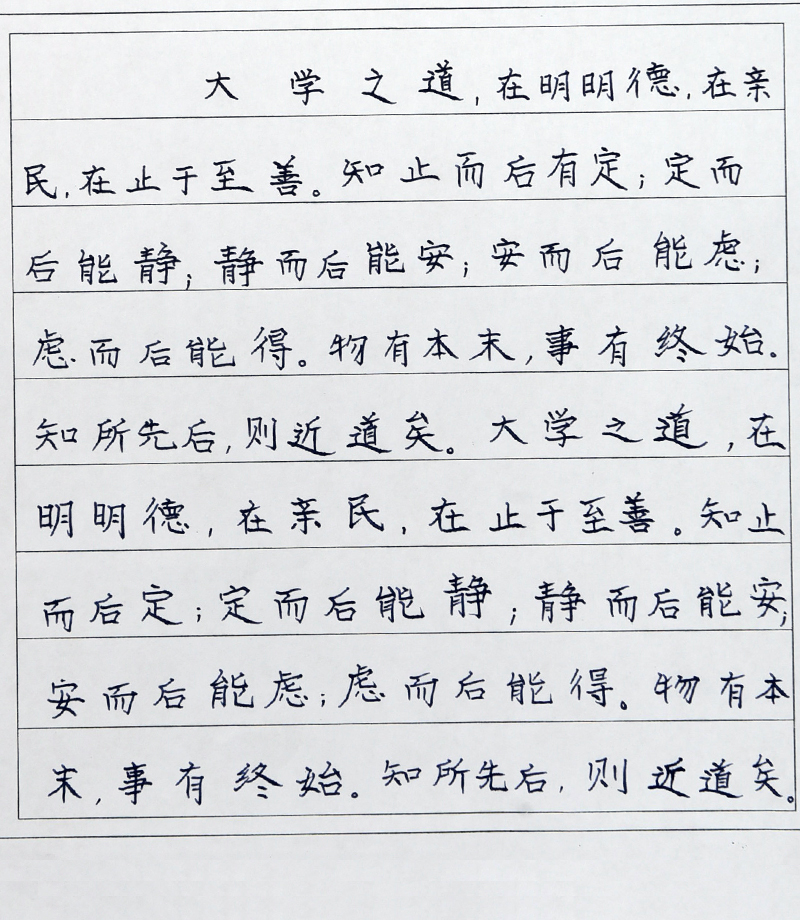 大学之道，在明明德，在亲
民，在止于至善。知止而后有定；定而
后能静；静而后能安；安而后能虑；
虑而后能得。物有本末，事有终始。
知所先后，则近道矣。大学之道，在
明明德，在亲民，在止于至善。知止
而后定；定而后能静；静而后能安；
安而后能虑；虑而后能得。物有本
末，事有终始。知所先后，则近道矣。